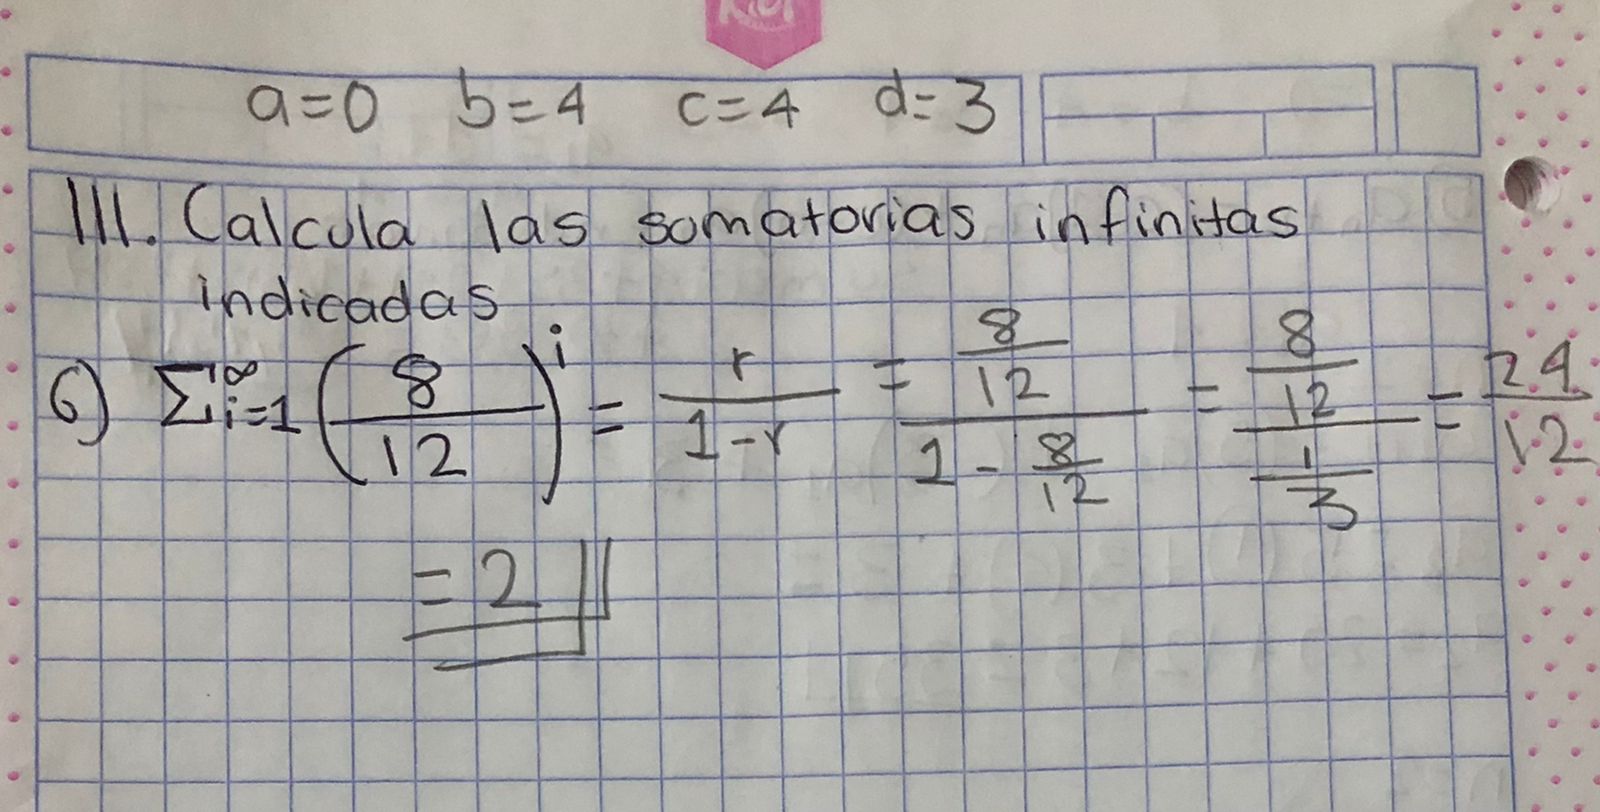 Kiut
a=0 b=4 c=4 d=3
III. Calcula las somatorias infinitas
indicadas
6) Σ_{i=1}^{∞} (8/12)^i = r/(1-r) = (8/12)/(1 - 8/12) = (8/12)/(1/3) = 24/12
= 2 //